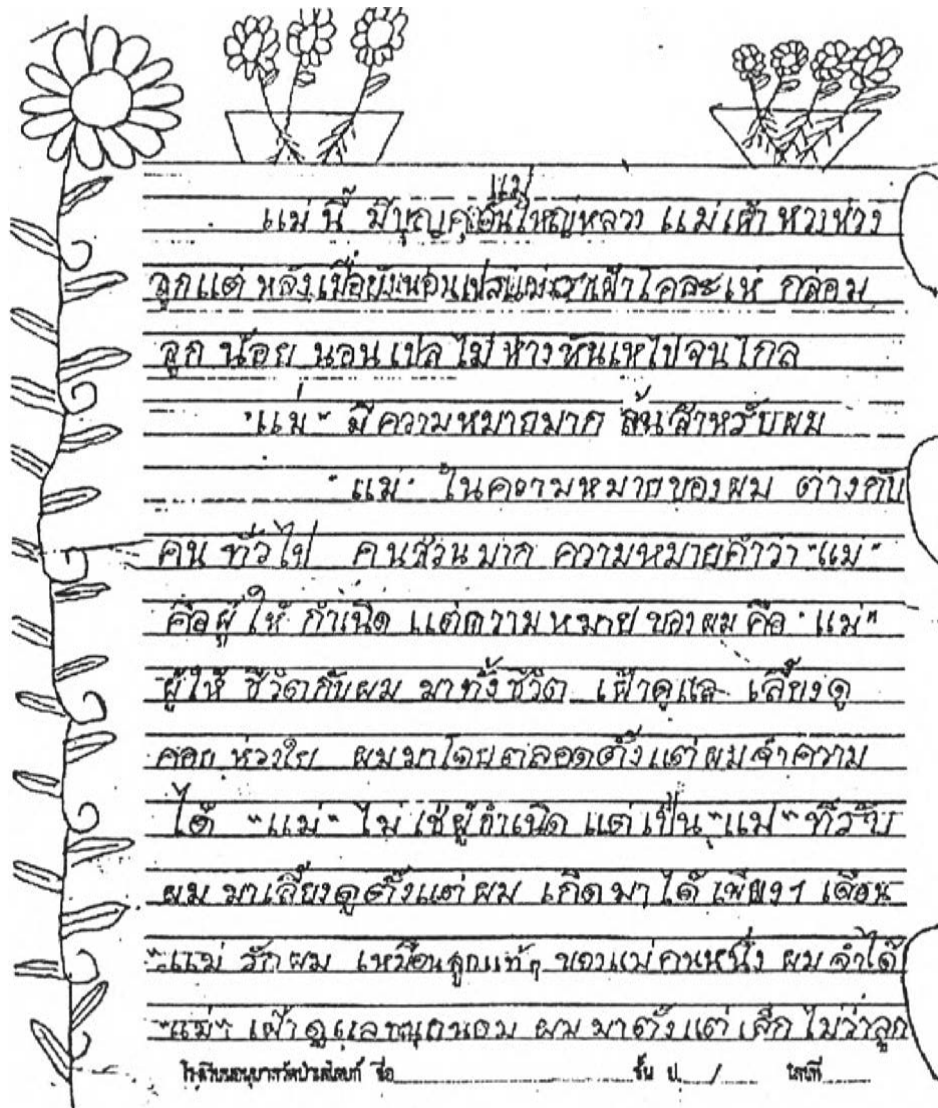 แม่
แม่ นี้ มีบุญคุณอันใหญ่หลวง แม่เฝ้า หวงห่วง
ลูกแต่ หลัง เมื่อยังนอนเปล แม่เราเฝ้าโอละเห่ กล่อม
ลูก น้อย นอน เปล ไม่ ห่างหันเหไปจนไกล
"แม่" มี ความหมายมาก ล้นสำหรับผม
"แม่" ในความหมายของผม ต่างกับ
คน ทั่วไป คนส่วนมาก ความหมายคำว่า "แม่"
คือผู้ ให้ กำเนิด แต่ความหมายของผมคือ "แม่"
ผู้ให้ ชีวิตกับผม มาทั้งชีวิต เฝ้าดูแล เลี้ยงดู
คอย ห่วงใย ผมมาโดยตลอดตั้งแต่ผมจำความ
ได้ "แม่" ไม่ ใช่ผู้กำเนิด แต่เป็น "แม่" ที่รับ
ผม มาเลี้ยงดูตั้งแต่ผม เกิดมาได้ เพียง 1 เดือน
"แม่ รักผม เหมือนลูกแท้ๆ ของแม่คนหนึ่ง ผมจำได้
"แม่" เฝ้าดูแลทนุถนอม ผมมาตั้งแต่เล็ก ไม่ว่าลูก
ชื่อ ชั้น ป. / เลขที่